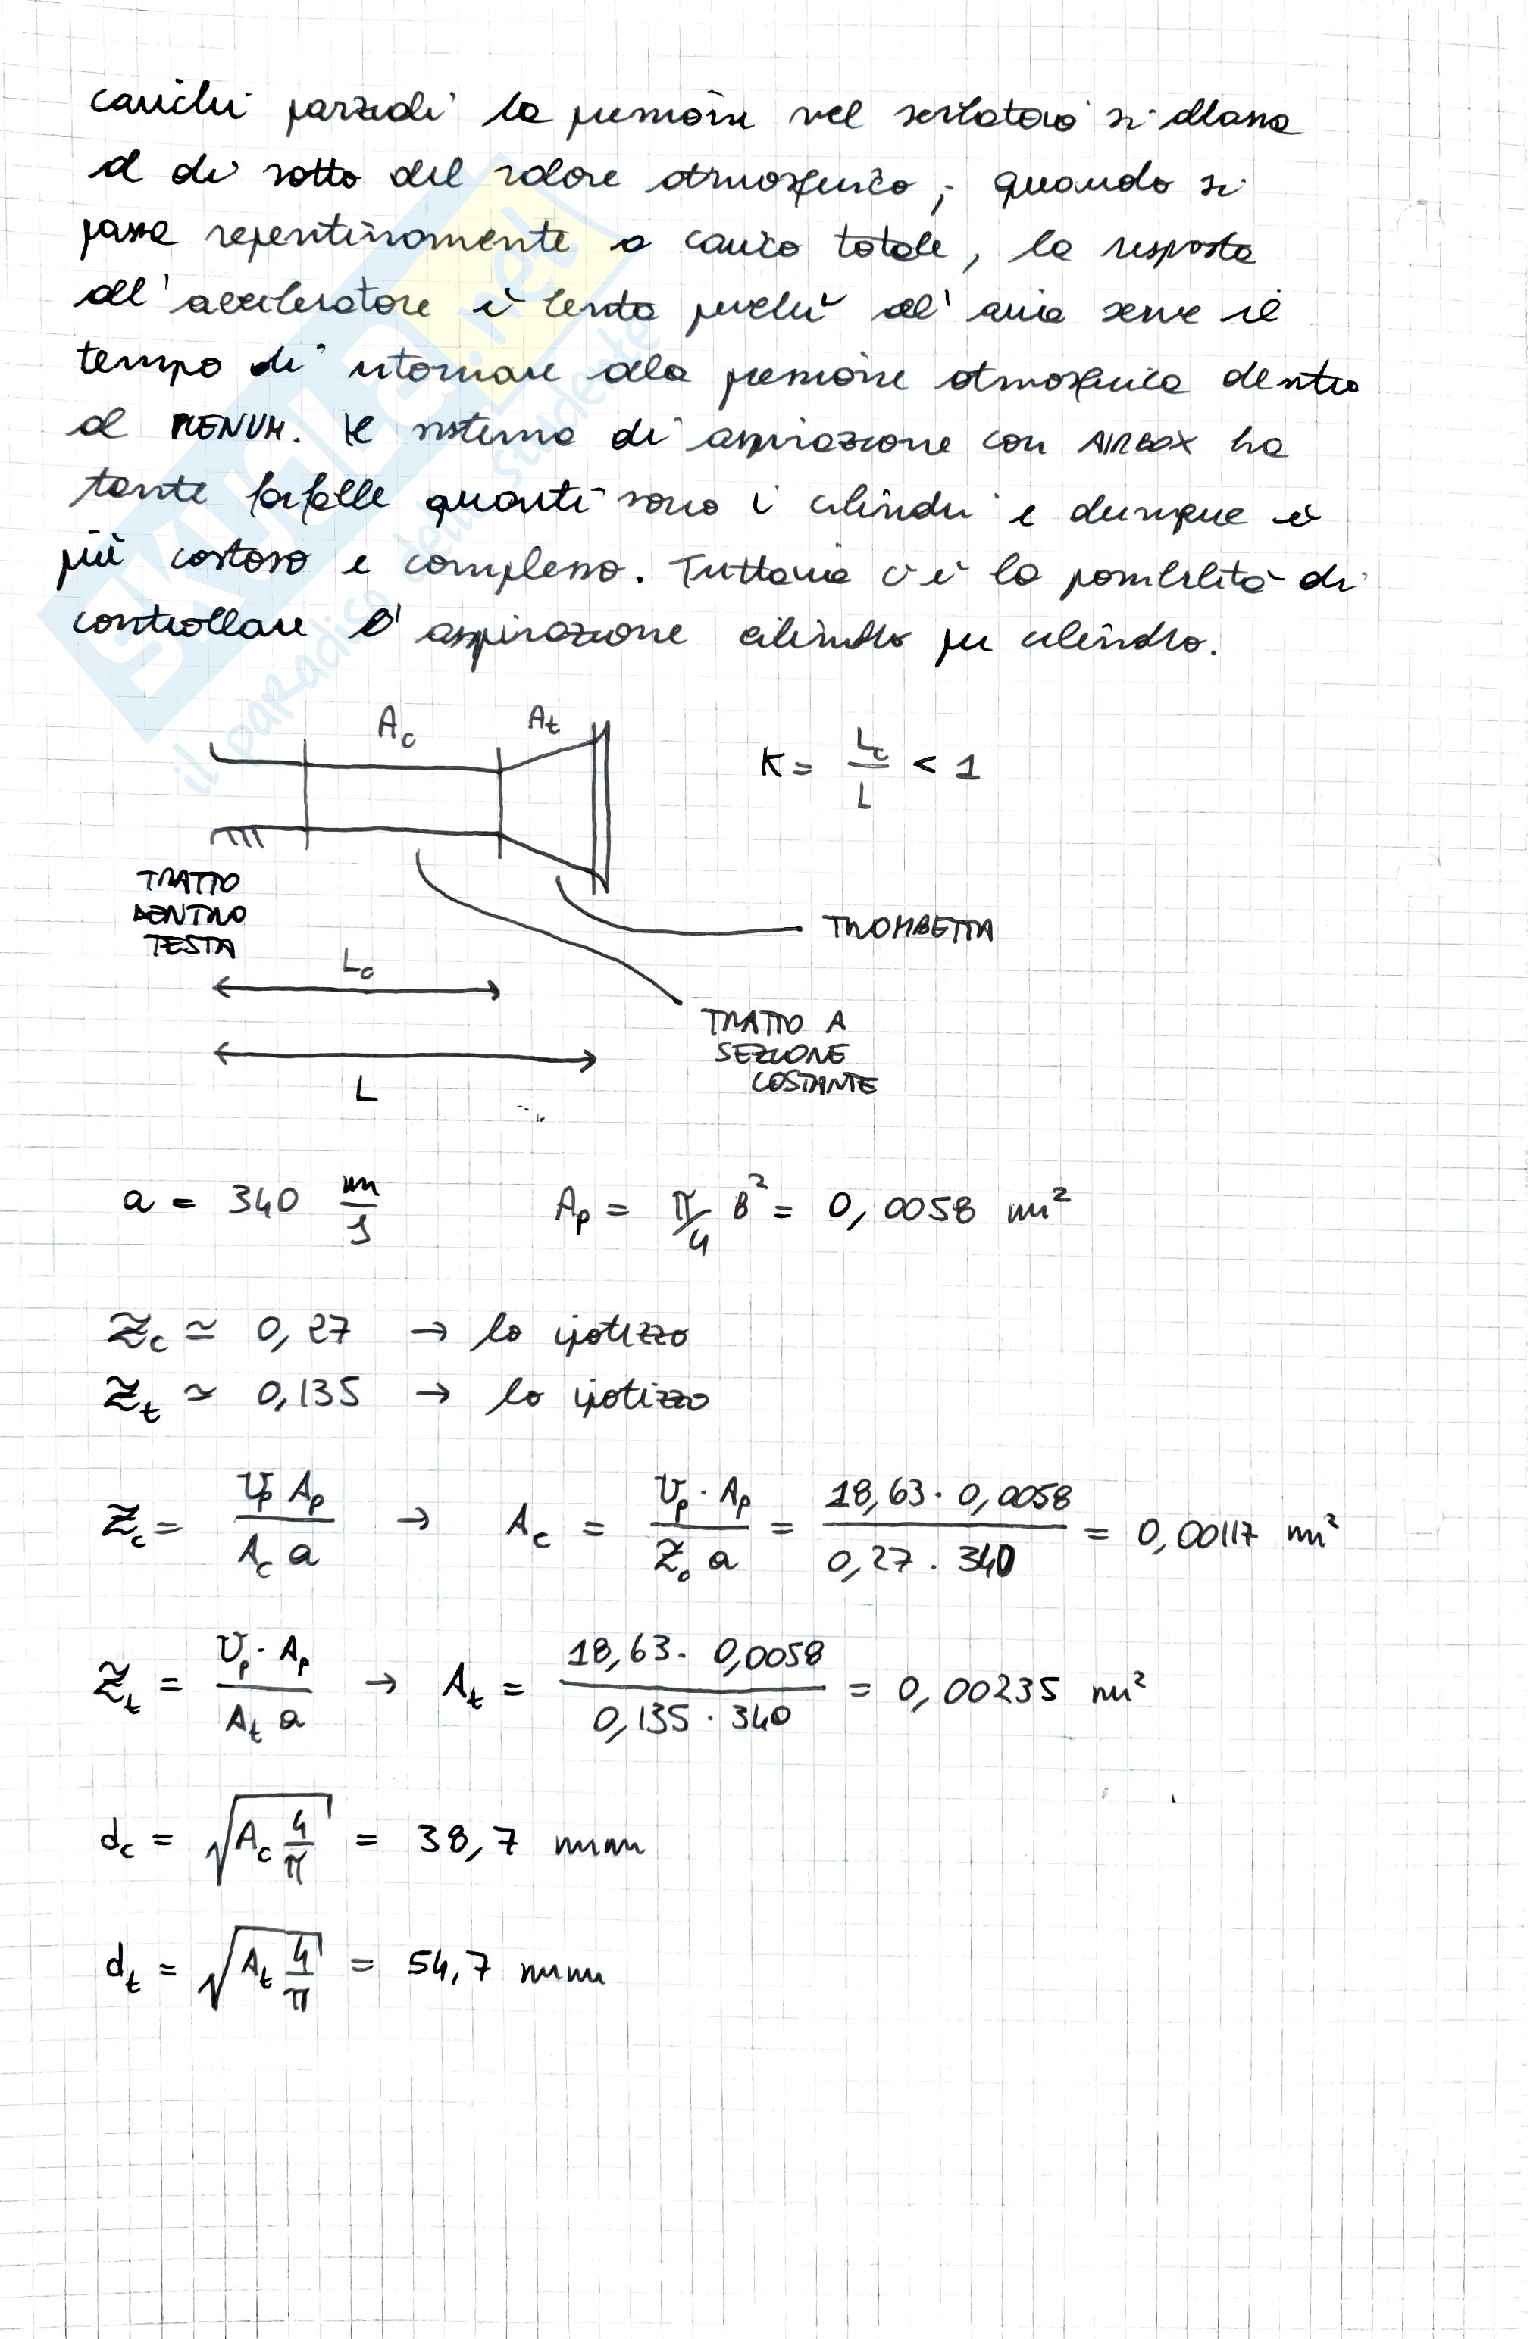 carichi parziali la pressione nel serbatoio si abbassa
al di sotto del valore atmosferico; quando si
passa repentinamente a carico totale, la risposta
all'acceleratore è lenta perché all'aria serve il
tempo di ritornare alla pressione atmosferica dentro
al PLENUM. Il sistema di aspirazione con AIRBOX ha
tante farfalle quanti sono i cilindri e dunque è
più costoso e complesso. Tuttavia c'è la possibilità di
controllare l'aspirazione cilindro per cilindro.
SKUOLA.net
il paradiso dello studente
A_c A_t
K = L_c / L < 1
TRATTO
DENTRO
TESTA
TROMBETTA
L_c
TRATTO A
SEZIONE
COSTANTE
L
a = 340 m/s A_p = π/4 B² = 0,0058 m²
Z̃_c ≃ 0,27 → lo ipotizzo
Z̃_t ≃ 0,135 → lo ipotizzo
Z̃_c = U_p A_p / A_c a → A_c = U_p · A_p / Z̃_c a = 18,63 · 0,0058 / 0,27 · 340 = 0,00117 m²
Z̃_t = U_p · A_p / A_t a → A_t = 18,63 · 0,0058 / 0,135 · 340 = 0,00235 m²
d_c = √(A_c 4/π) = 38,7 mm
d_t = √(A_t 4/π) = 54,7 mm